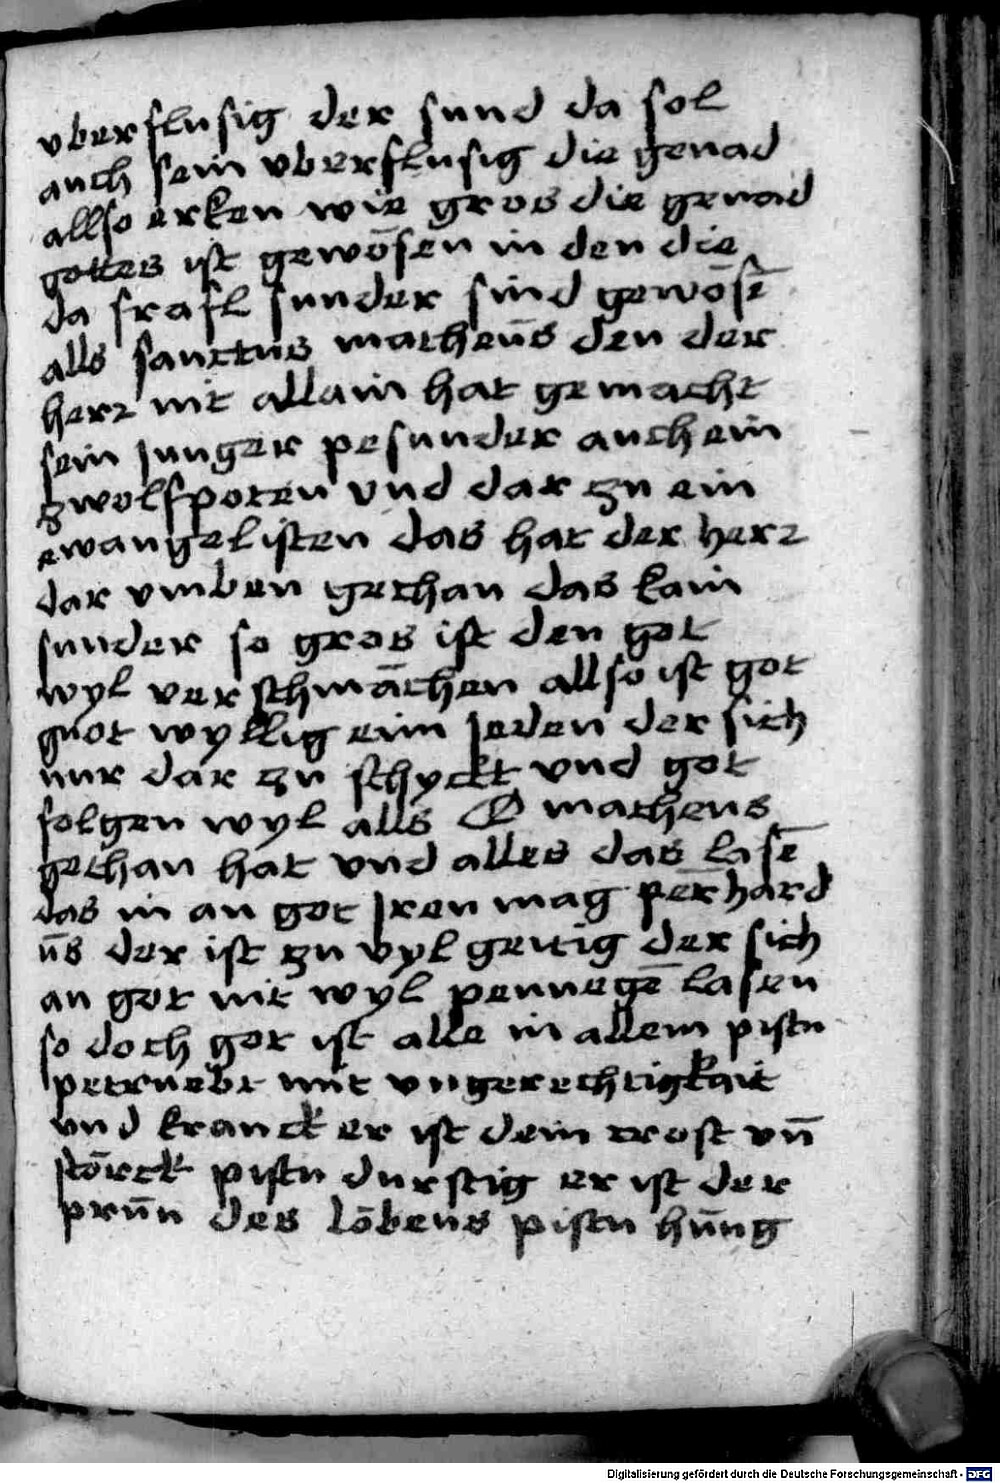 vberflusig der sund da sol
auch sein vberflusig die genad
allso erken wie gros die genad
gottes ist gewösen in den die
da frafl sunder sind gewösē
alls sanctus matheūs den der
herz nit allain hat gemacht
sein junger pesunder auch ein
zwolfpoten vnd dar zu ein
ewangelisten das hat der herz
dar vmben gethan das kain
sunder so gros ist den got
wyl ver schmāchen allso ist got
guot wyllig eim jeden der sich
nur dar zu schyckt vnd got
folgen wyl alls S matheus
gethan hat vnd alles das lasē
das in an got jren mag pērhard
ūs der ist zu vyl geitig der sich
an got nit wyl pennegē lasen
so doch got ist alle in allem pistu
petruebt mit vngerechtigkait
vnd kranck er ist dein trost vn̄
störck pistu durstig er ist der
prūn des löbens pistu hūng
Digitalisierung gefördert durch die Deutsche Forschungsgemeinschaft - DFG